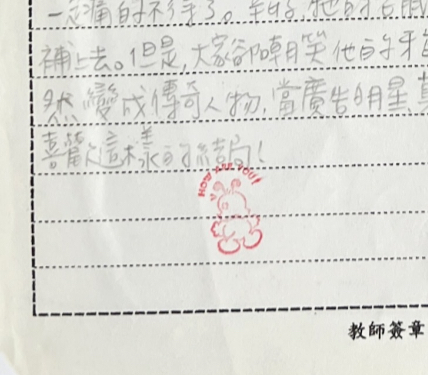 一定痛的不得了。幸好,牠的
補上去。但是,大家卻嘲笑他的牙
然變成傳奇人物,當廣告明星,
喜歡這樣的結局!
HOW ARE YOU!
教師簽章